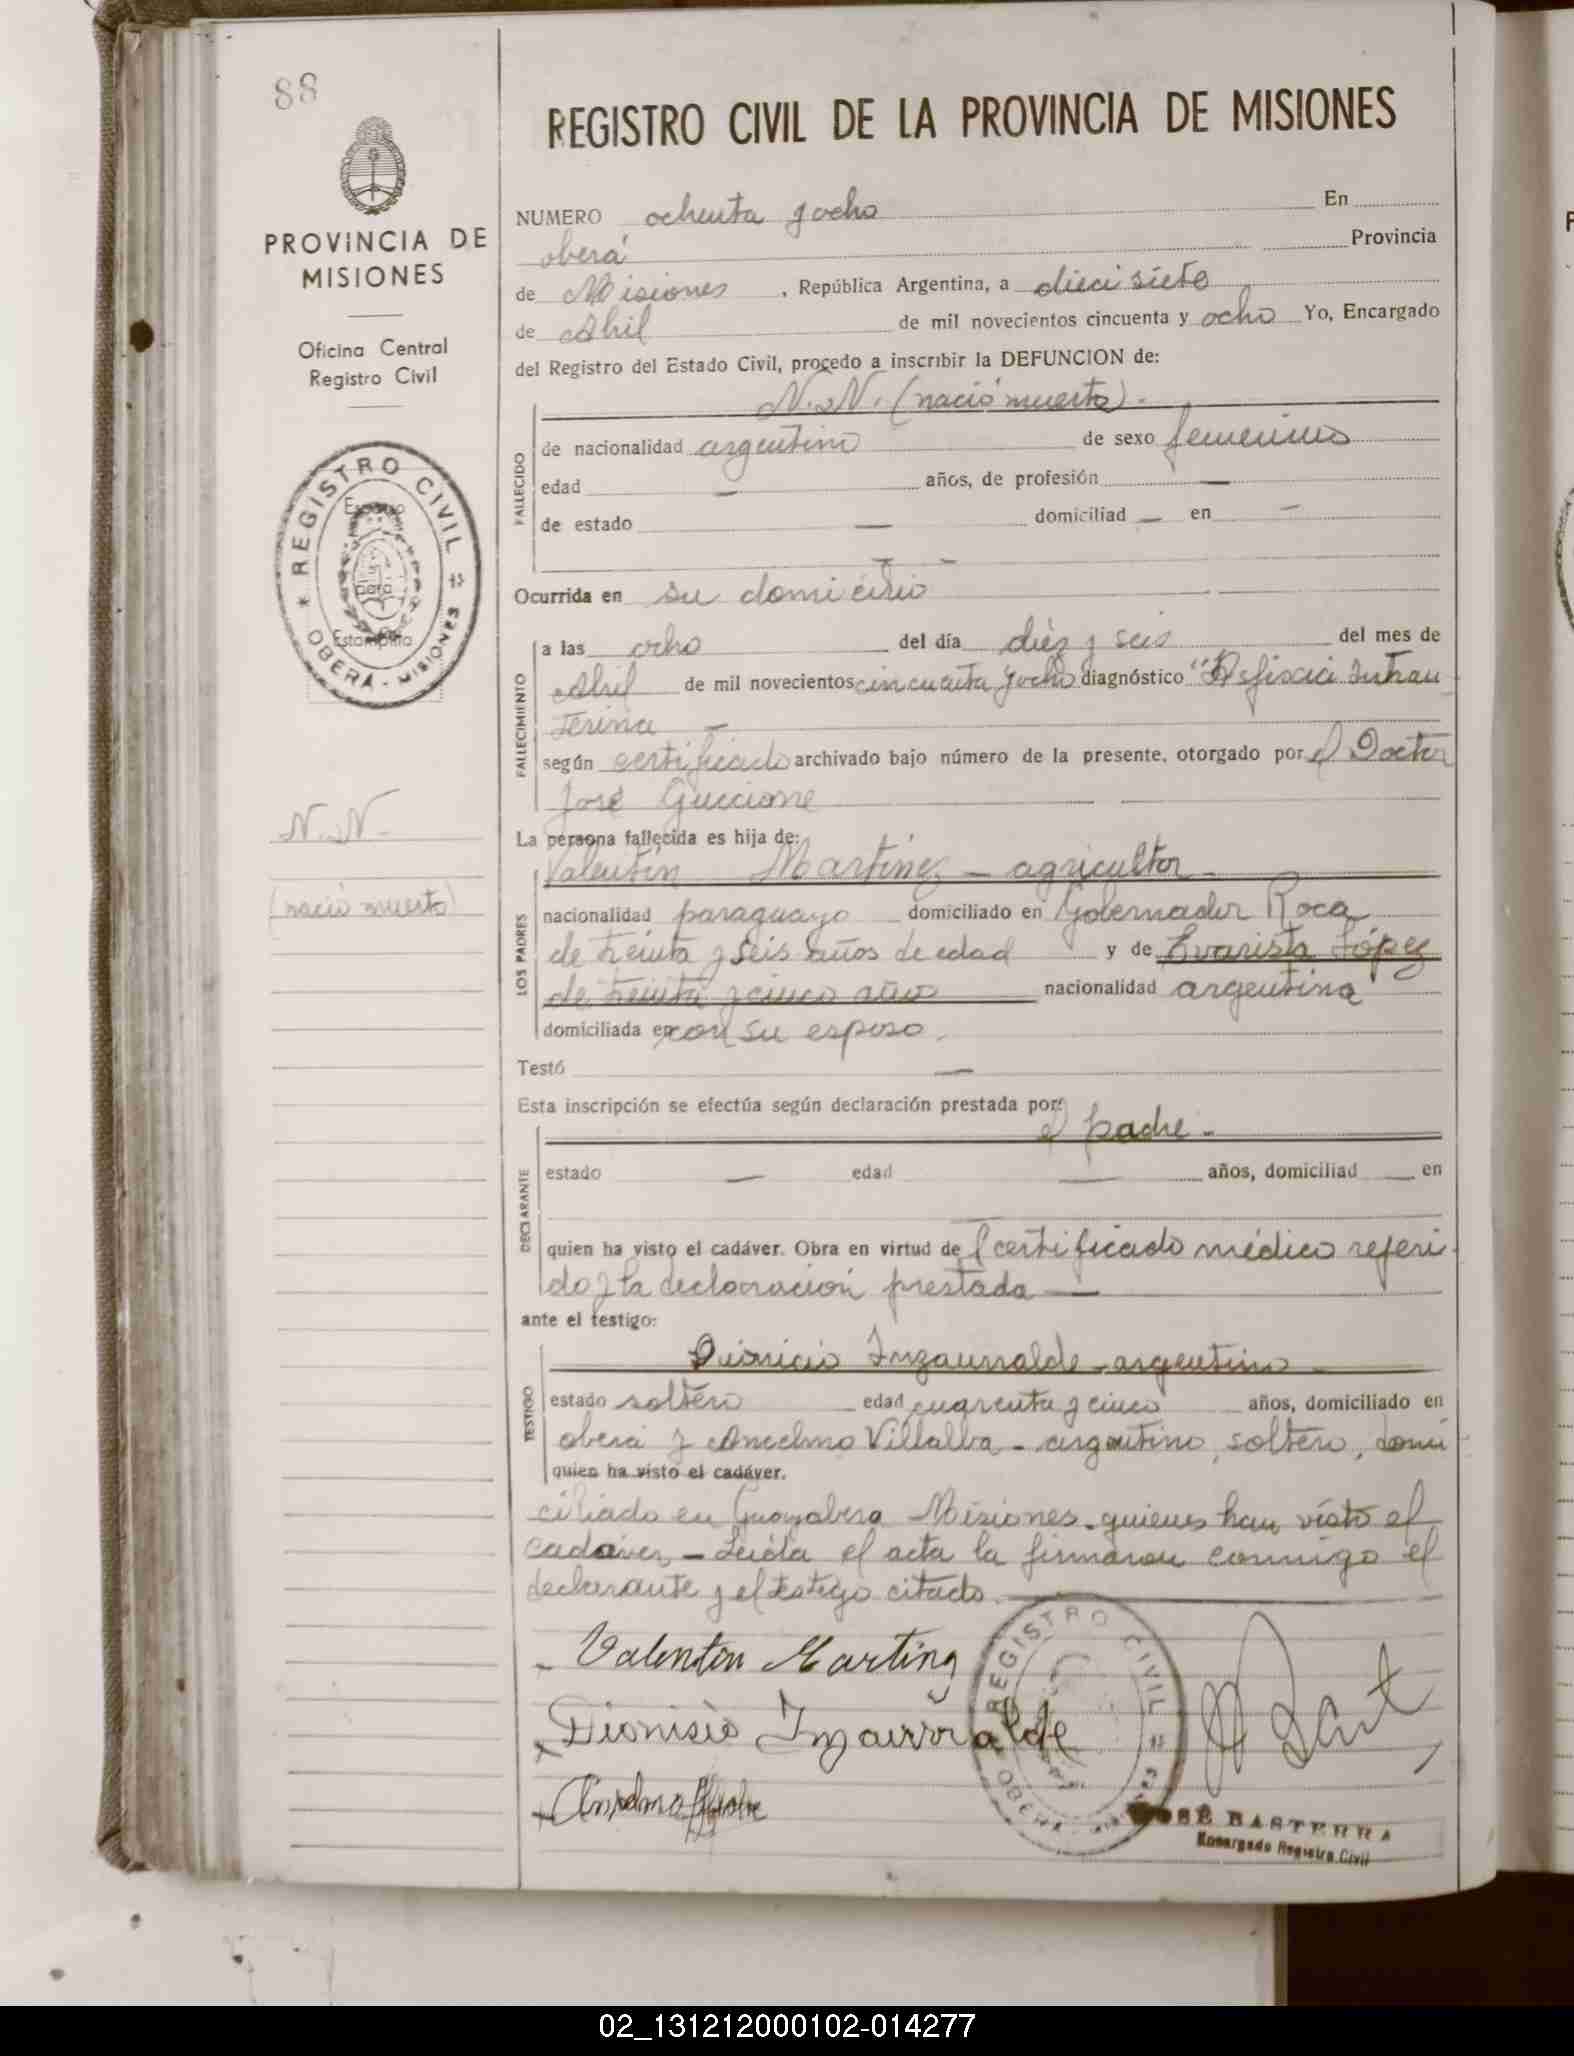 88
PROVINCIA DE
MISIONES
Oficina Central
Registro Civil
REGISTRO CIVIL
Espacio
para
Estampilla
OBERÁ - MISIONES
N. N.
(nació muerto)
REGISTRO CIVIL DE LA PROVINCIA DE MISIONES
NUMERO ochenta y ocho En
oberá Provincia
de Misiones , República Argentina, a diecisiete
de Abril de mil novecientos cincuenta y ocho Yo, Encargado
del Registro del Estado Civil, procedo a inscribir la DEFUNCION de:
N. N. (nació muerto).-
FALLECIDO
de nacionalidad argentino de sexo femenino
edad — años, de profesión —
de estado — domiciliad — en —
Ocurrida en su domicilio
FALLECIMIENTO
a las ocho del día diéz y seis del mes de
Abril de mil novecientos cincuenta y ocho diagnóstico "Asfixia intrau
terina —
según certificado archivado bajo número de la presente, otorgado por el Doctor
José Guccione
La persona fallecida es hija de:
LOS PADRES
Valentín Martínez - agricultor -
nacionalidad paraguayo domiciliado en Gobernador Roca
de treinta y seis años de edad y de Evarista López
de treinta y cinco años nacionalidad argentina
domiciliada en con su esposo.
Testó —
Esta inscripción se efectúa según declaración prestada por:
el padre -
DECLARANTE
estado — edad — años, domiciliad — en
quien ha visto el cadáver. Obra en virtud del certificado médico referi-
do y la declaración prestada —
ante el testigo:
TESTIGO
Dionicio Inzaurralde - argentino -
estado soltero edad cuarenta y cinco años, domiciliado en
oberá y Anselmo Villalba - argentino, soltero, domi
quien ha visto el cadáver.
ciliado en Guayabera Misiones - quienes han visto el
cadáver - Leída el acta la firmaron conmigo el
declarante y el testigo citado.
Valentin Martinez
Dionisio Inzaurralde
Anselmo
REGISTRO CIVIL
OBERÁ - MISIONES
JOSÉ BASTERRA
Encargado Registro Civil
02_131212000102-014277